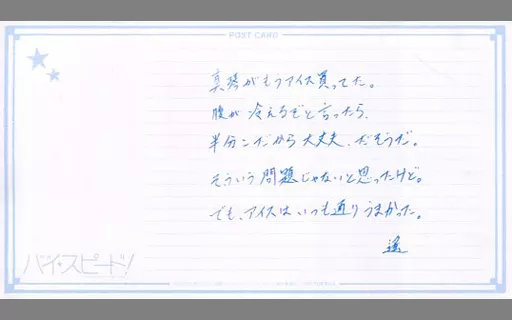 POST CARD
真琴がもうアイス買ってた。
腹が冷えるぞと言ったら、
半分こだから大丈夫、だそうだ。
そういう問題じゃないと思ったけど。
でも、アイスはいつも通りうまかった。
遙
ハイ☆スピード!